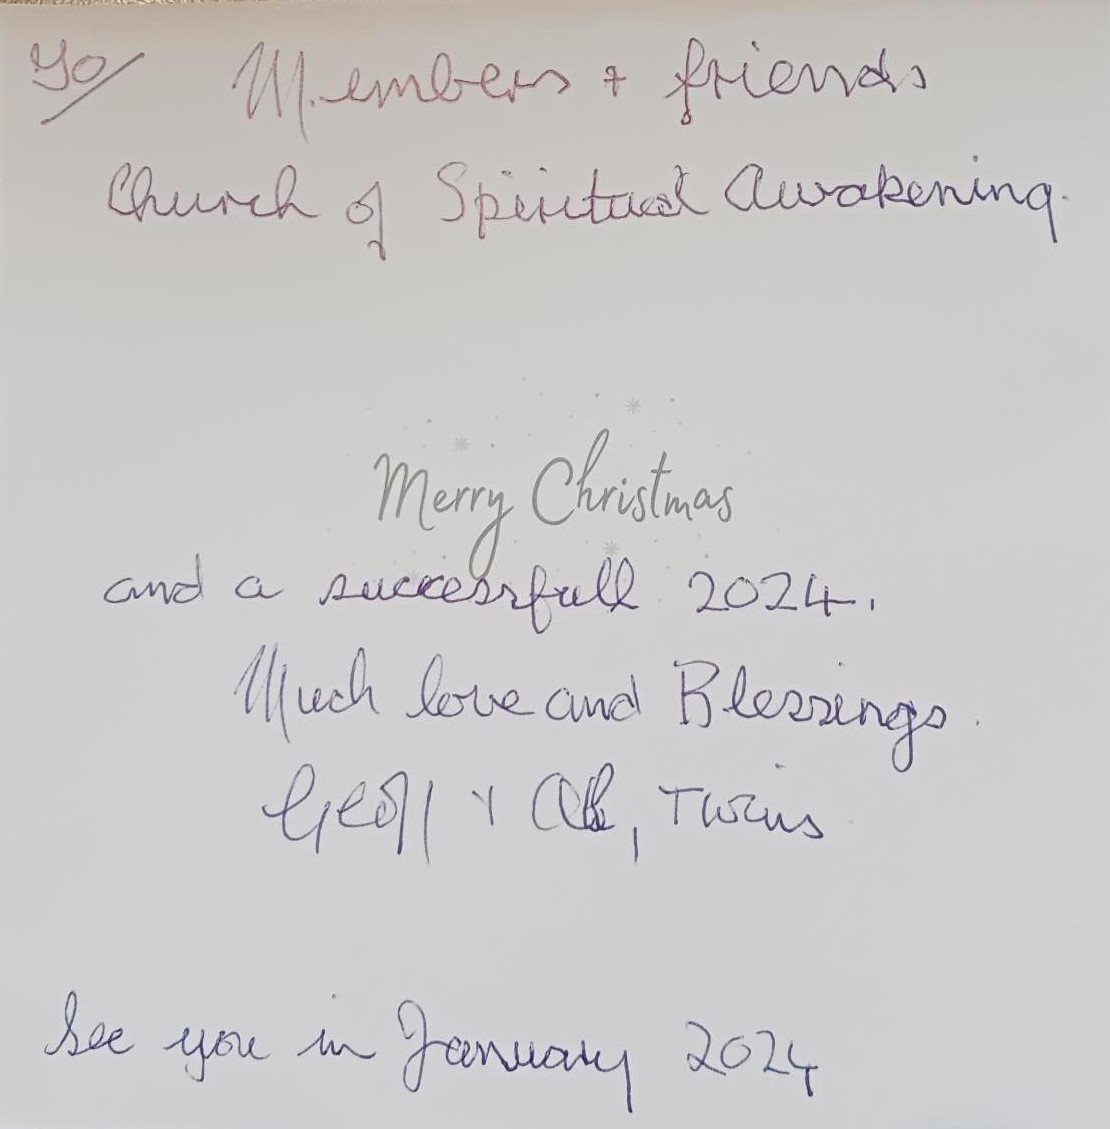 To/ Members + friends
Church of Spiritual Awakening.
Merry Christmas
and a successfull 2024.
Much love and Blessings.
Geoff + , Twins
See you in January 2024